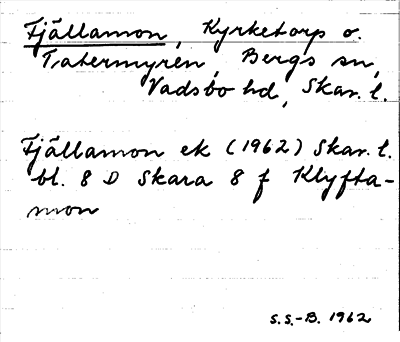 Fjällamon, Kyrketorp o.
Tatermyren, Bergs sn,
Vadsbo hd, Skar. l.
Fjällamon ek (1962) Skar. l.
bl. 8 D Skara 8 f Klyfta-
mon
S.S.-B. 1962